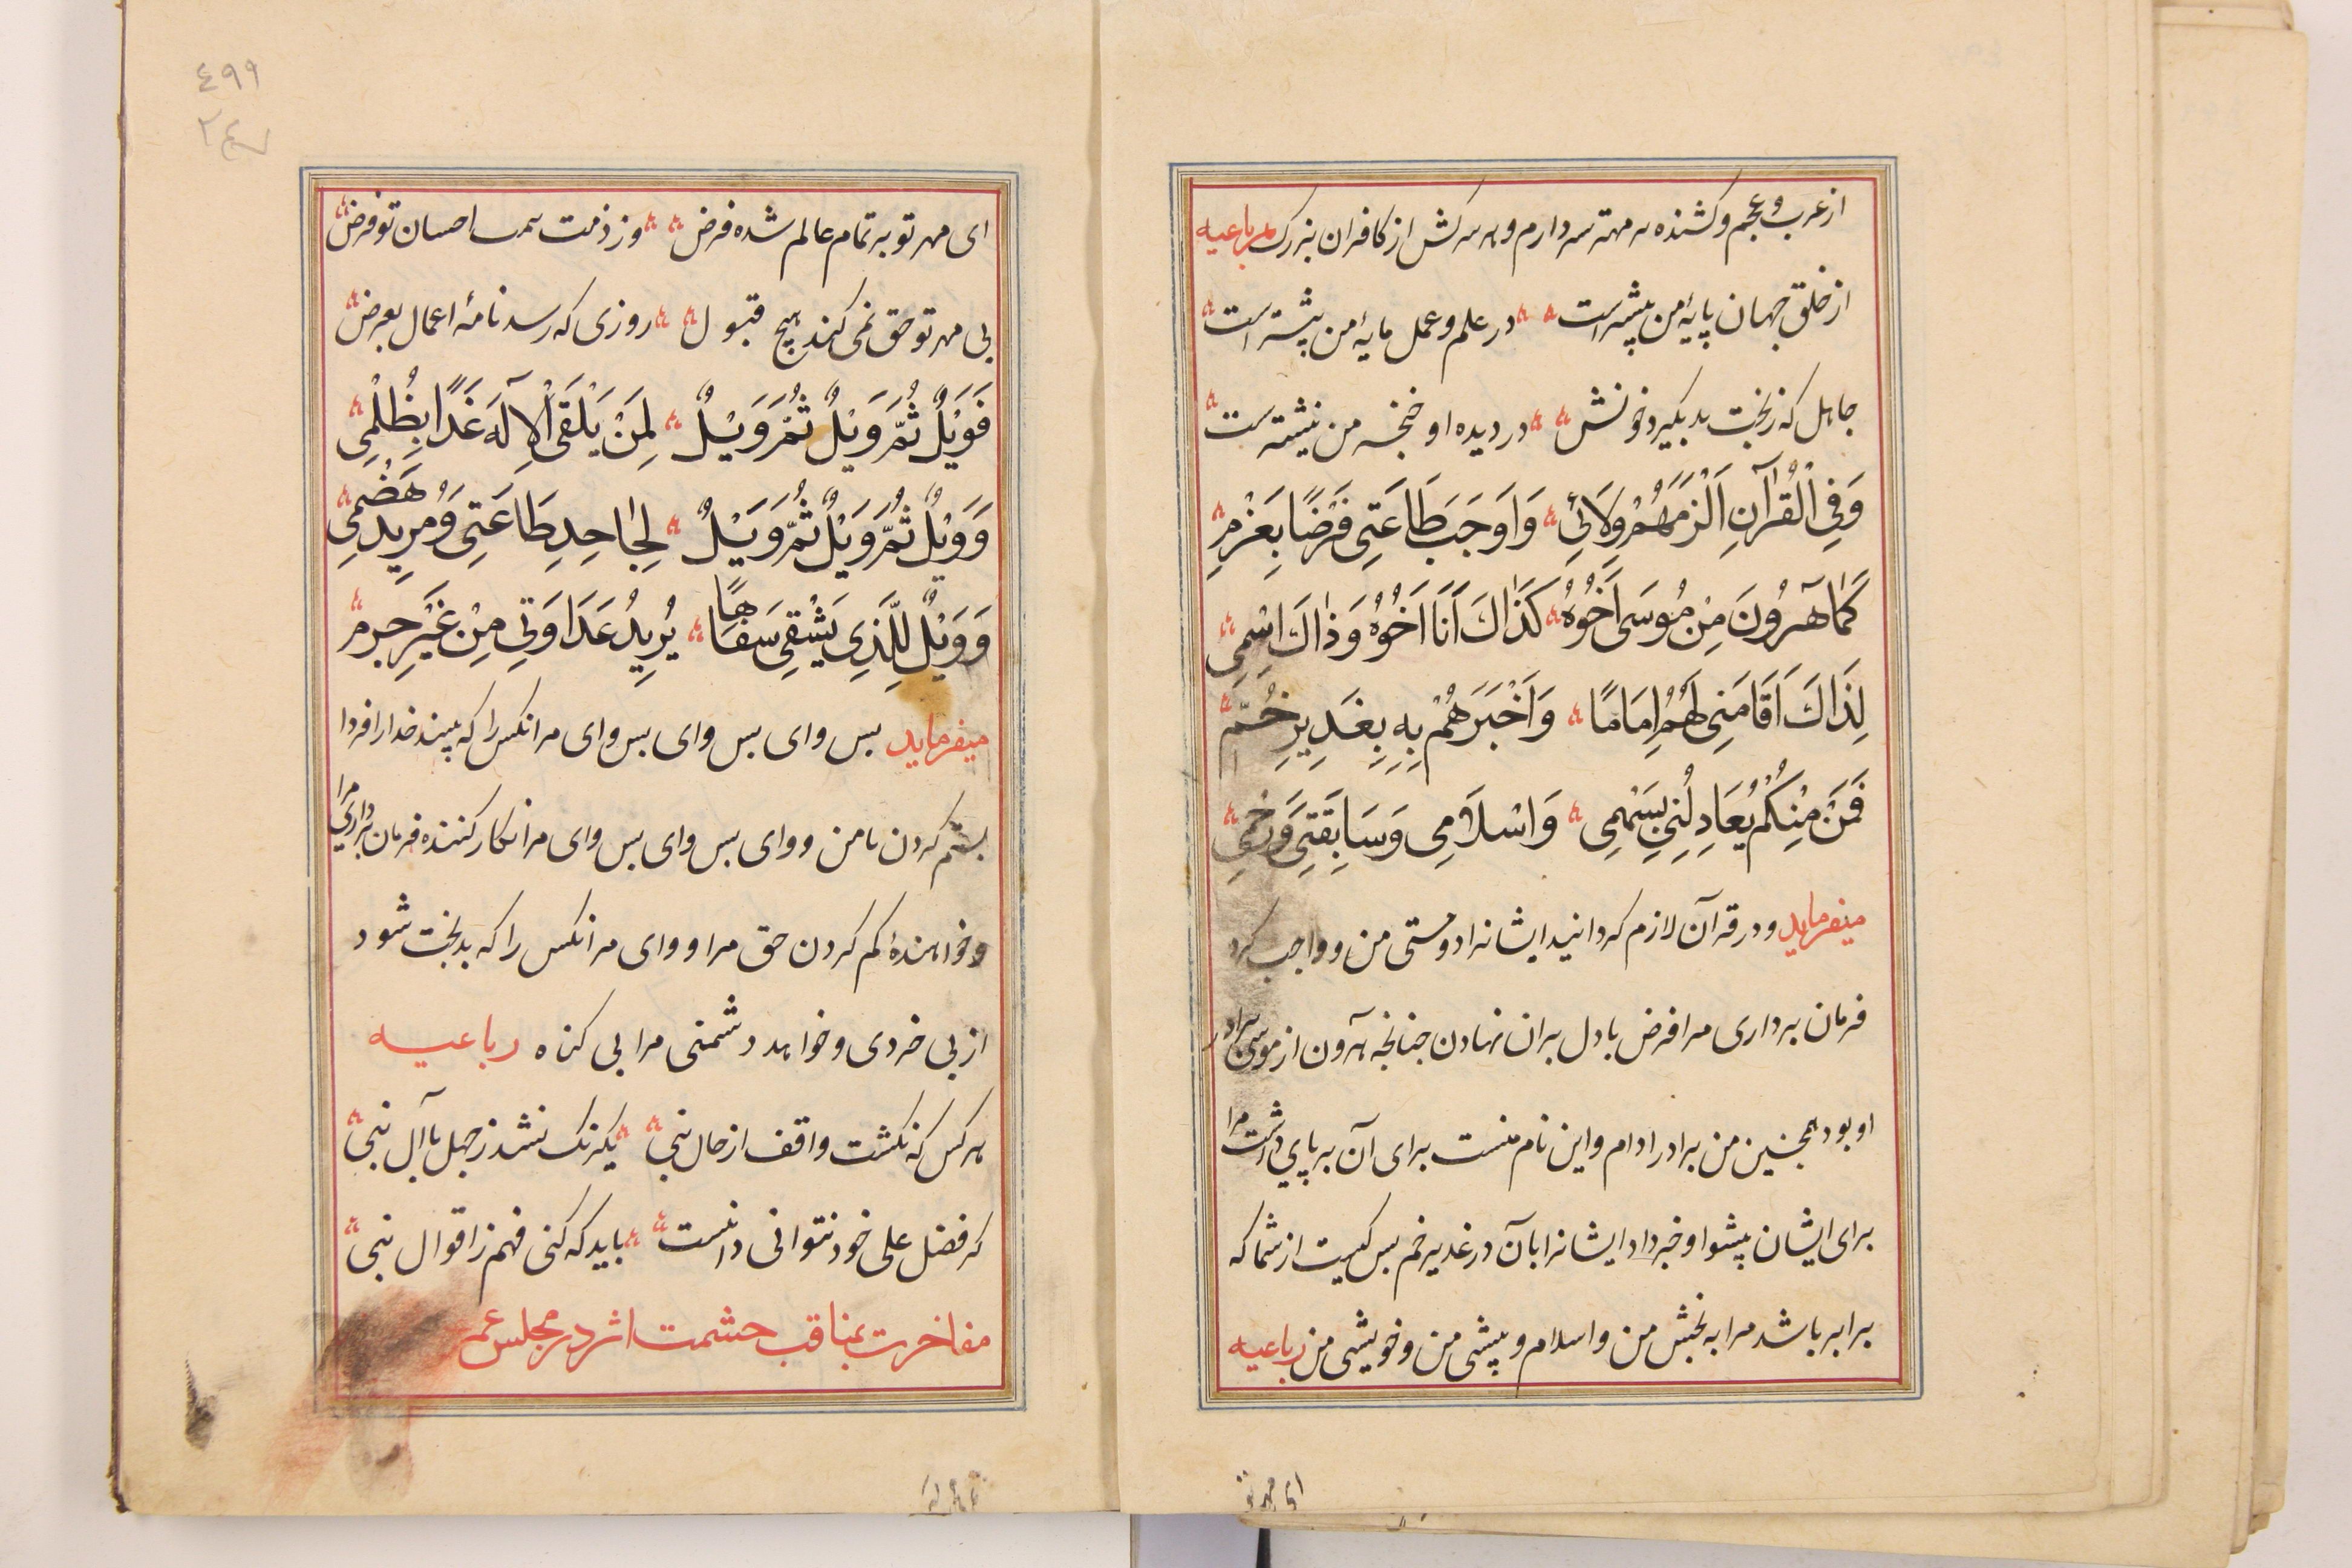 از عرب و عجم و کشنده هر مهتر سردارم و هر سرکش از کافران بزرک رباعیه
از خلق جهان پایهٔ من پیشتر است در علم و عمل مایهٔ من بیشتر است
جاهل که ز بخت بد بکیرد خونش در دیده او خنجر من نیشتر ست
وَفِی الْقُرْآنِ اَلْزَمَهُمْ وِلَائِی وَاَوْجَبَ طَاعَتِی فَرْضًا بِعَزْمِ
کَمَا هٰرُونَ مِنْ مُوسَی اَخُوهُ کَذَاكَ اَنَا اَخُوهُ وَذَاكَ اسْمِی
لِذَاكَ اَقَامَنِی لَهُمُ اِمَامًا وَاَخْبَرَهُمْ بِهِ بِغَدِیرِ خُمِّ
فَمَنْ مِنْکُمْ یُعَادِلُنِی بِسَهْمِی وَاسْلَامِی وَسَابِقَتِی وَرَحْمِی
میفرماید و در قرآن لازم کردانید ایشانرا دوستی من و واجب کرد
فرمان برداری مرا فرض با دل بران نهادن چنانچه هرون از موسی برادر
او بود همچنین من برادر اوام و این نام منست برای آن بر پای داشت مرا
برای ایشان پیشوا و خبر داد ایشانرا بآن در غدیر خم بس کیست از شما که
برابر باشد مرا به بخش من و اسلام و پیشی من و خویشی من رباعیه
ای مهر تو
ای مهر تو بر تمام عالم شده فرض وز ذمت همه احسان تو قرض
بی مهر تو حق نمی کند هیچ قبول روزی که رسد نامهٔ اعمال بعرض
فَوَیْلٌ ثُمَّ وَیْلٌ ثُمَّ وَیْلٌ لِمَنْ یَلْقَی الْاِلٰهَ غَدًا بِظُلْمِی
وَوَیْلٌ ثُمَّ وَیْلٌ ثُمَّ وَیْلٌ لِجَاحِدِ طَاعَتِی وَمُرِیدِ هَضْمِی
وَوَیْلٌ لِلَّذِی یَشْقِی سَفَاهًا یُرِیدُ عَدَاوَتِی مِنْ غَیْرِ جِرْمِ
میفرماید بس وای بس وای بس وای مر انکس را که بیند خدا را فردا
بستم کردن با من و وای بس وای بس وای مر انکار کننده فرمان برداری مرا
و خواهندهٔ کم کردن حق مرا و وای مر انکس را که بدبخت شود
از بی خردی و خواهد دشمنی مرا بی کناه رباعیه
هر کس که نکشت واقف از حال نبی یکرنک نشد ز جهل با آل نبی
کر فضل علی خود نتوانی دانست باید که کنی فهم ز اقوال نبی
مفاخرت بمناقب حشمت اثر در مجلس عمر
٤٩٩